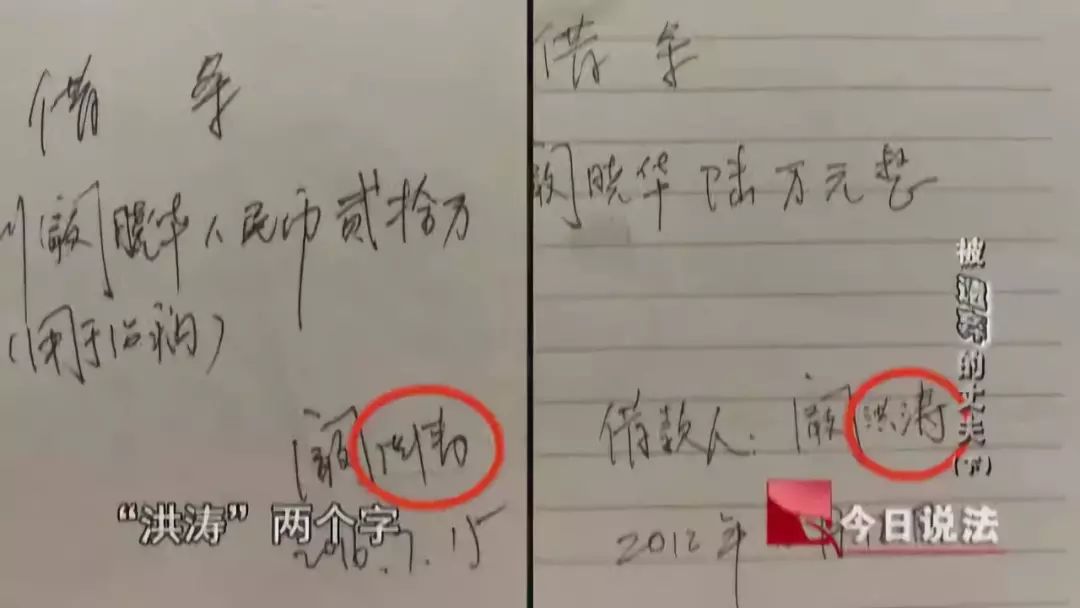 借 条
阚晓华人民币贰拾万
(用于治病)
阚洪涛
借 条
阚晓华 陆万元整
借款人: 阚洪涛
2012年
被遗弃的丈夫(下)
今日说法
“洪涛” 两个字